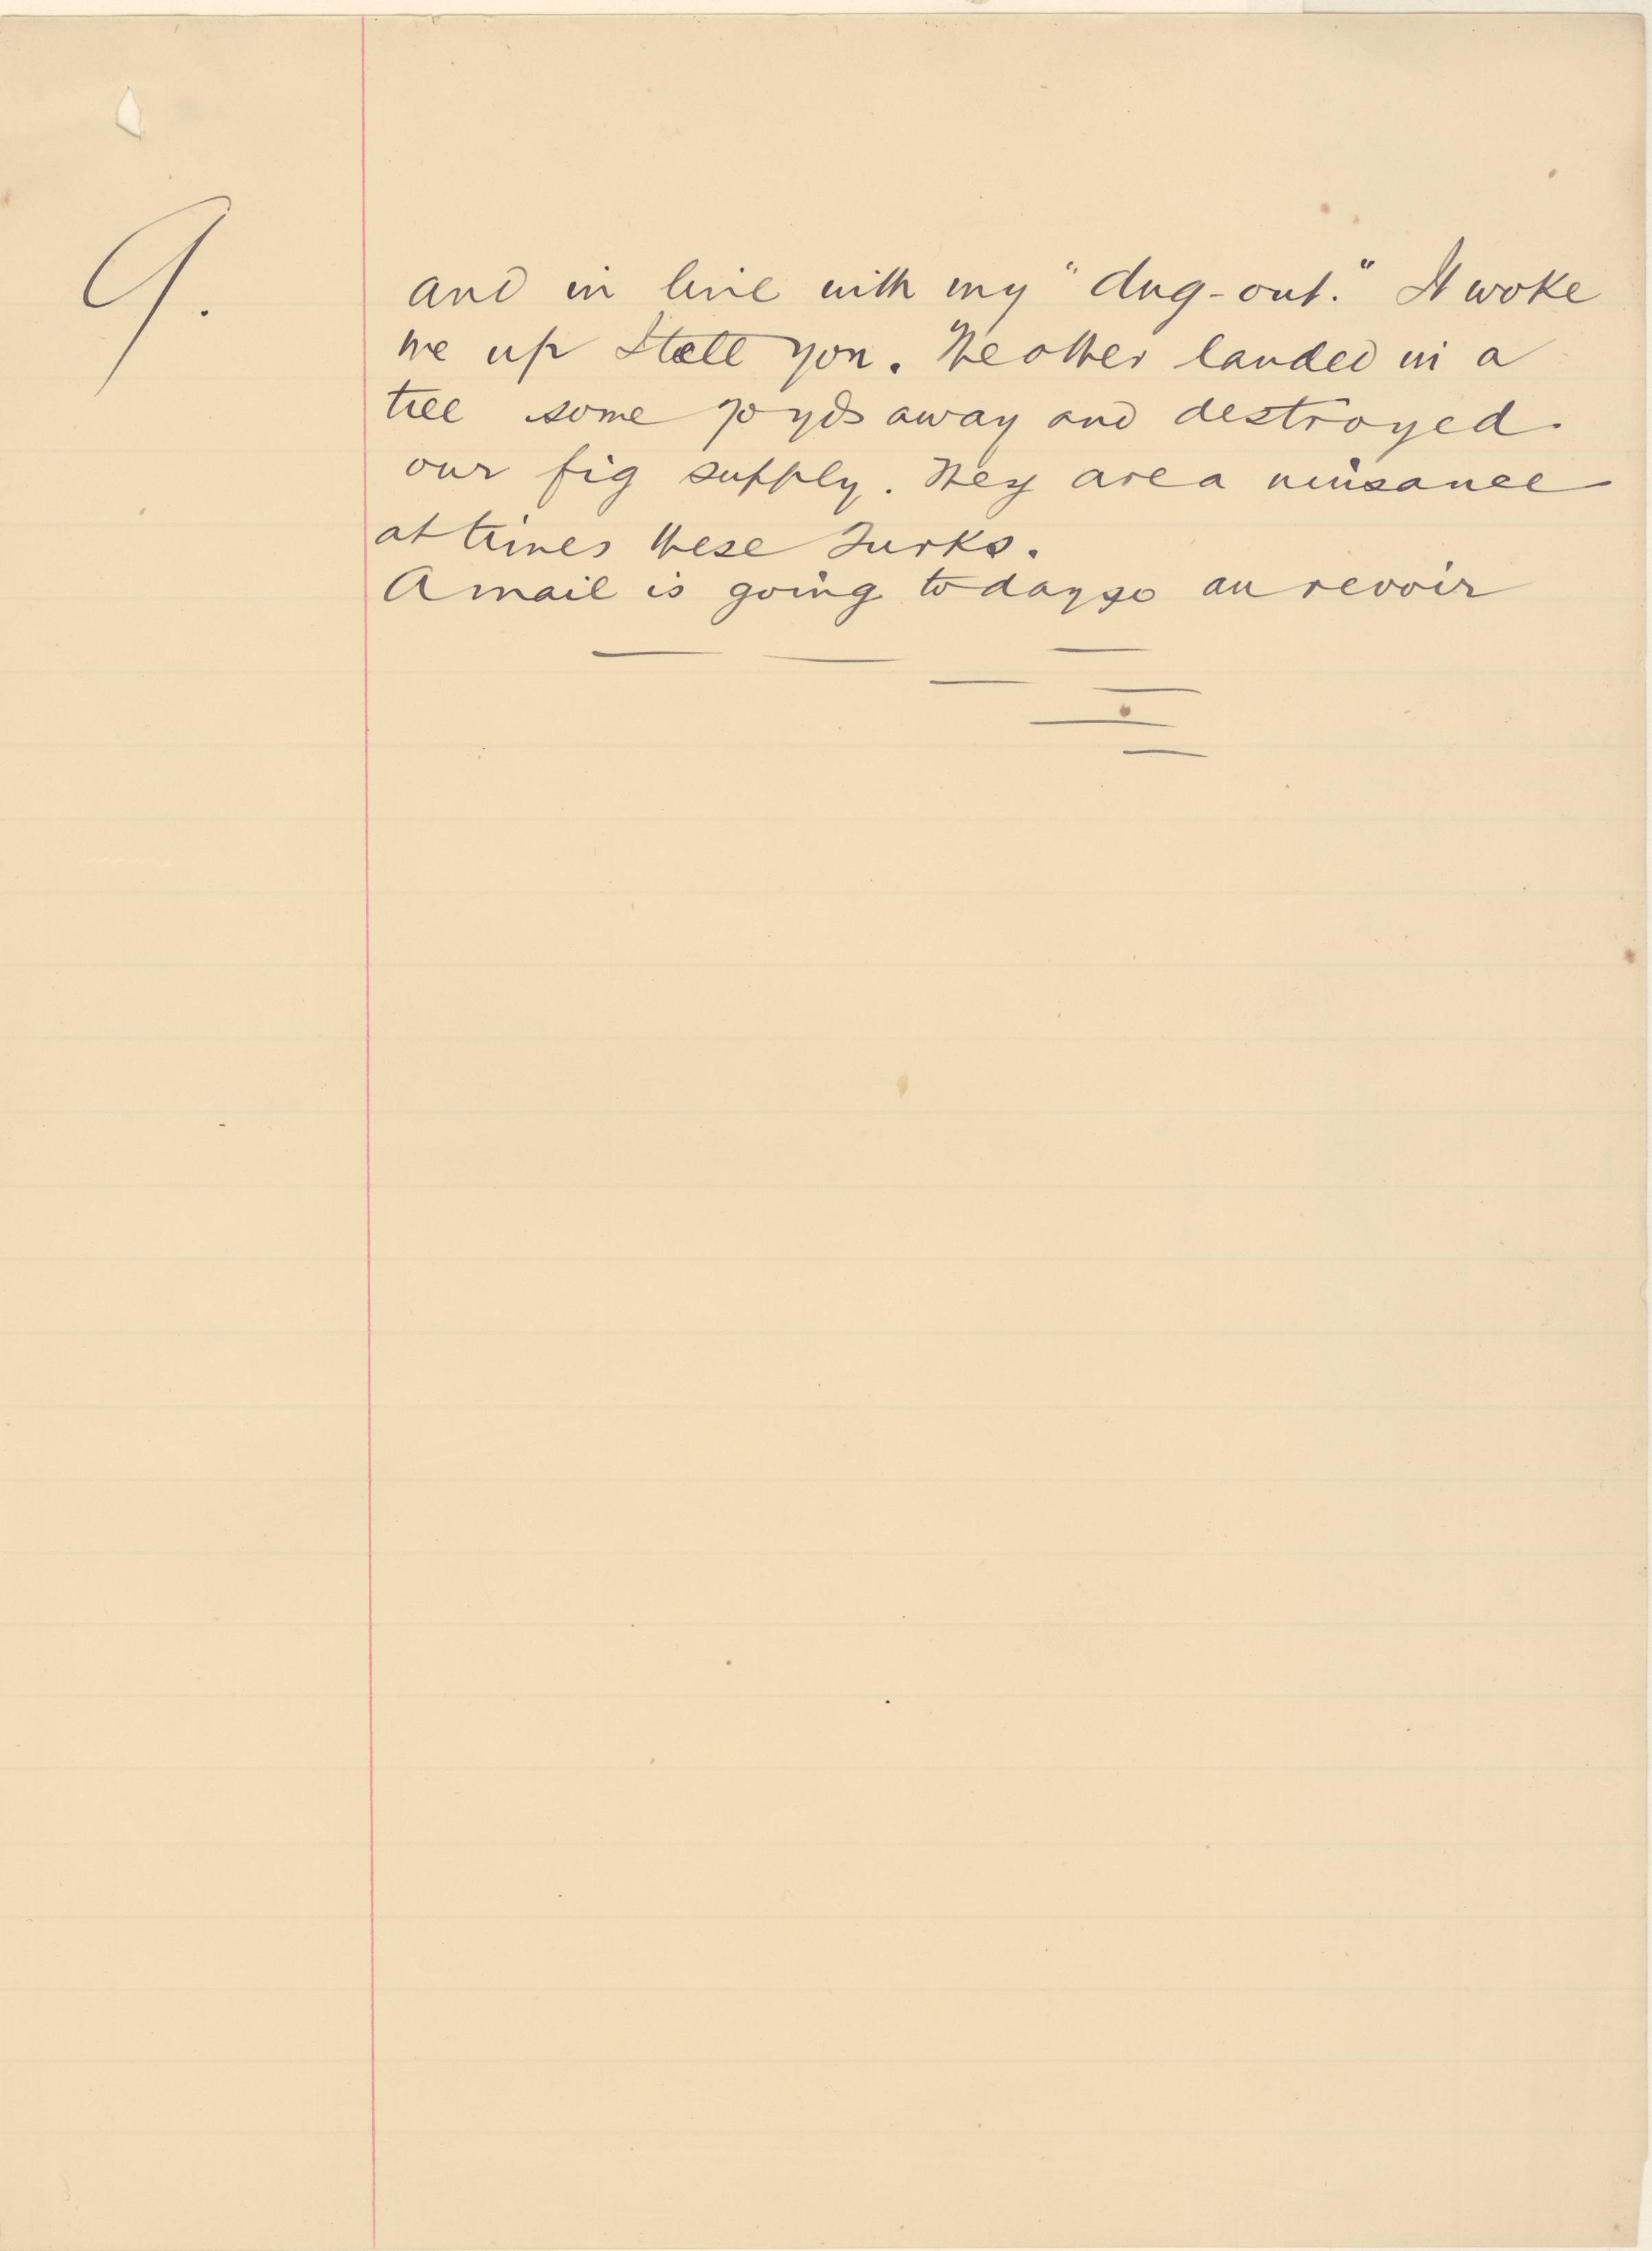 9.
and in line with my "dug-out." It woke
me up I tell you. The other landed in a
tree some 70 yds away and destroyed
our fig supply. They are a nuisance
at times these Turks.
A mail is going today so au revoir